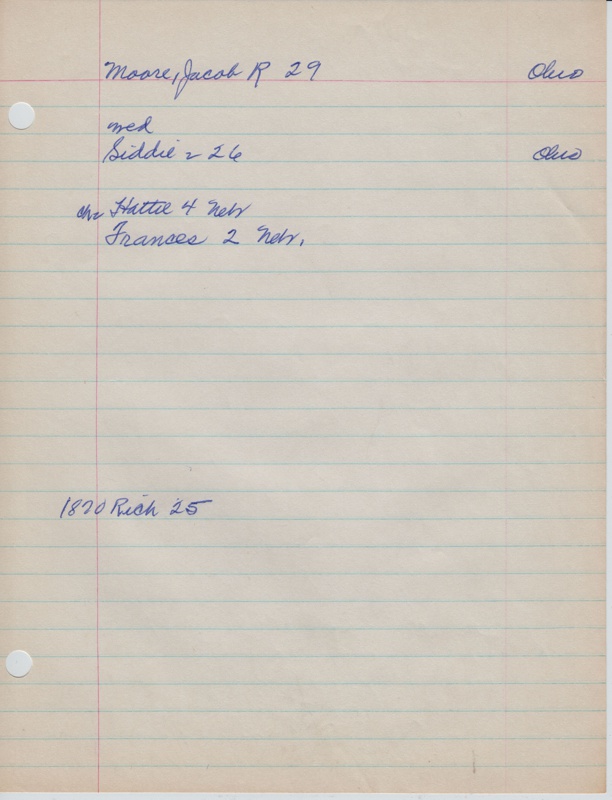 Moore, Jacob R 29 Ohio
med
Siddie = 26 Ohio
ch= Hattie 4 Nebr
Frances 2 Nebr.
1870 Rich 25